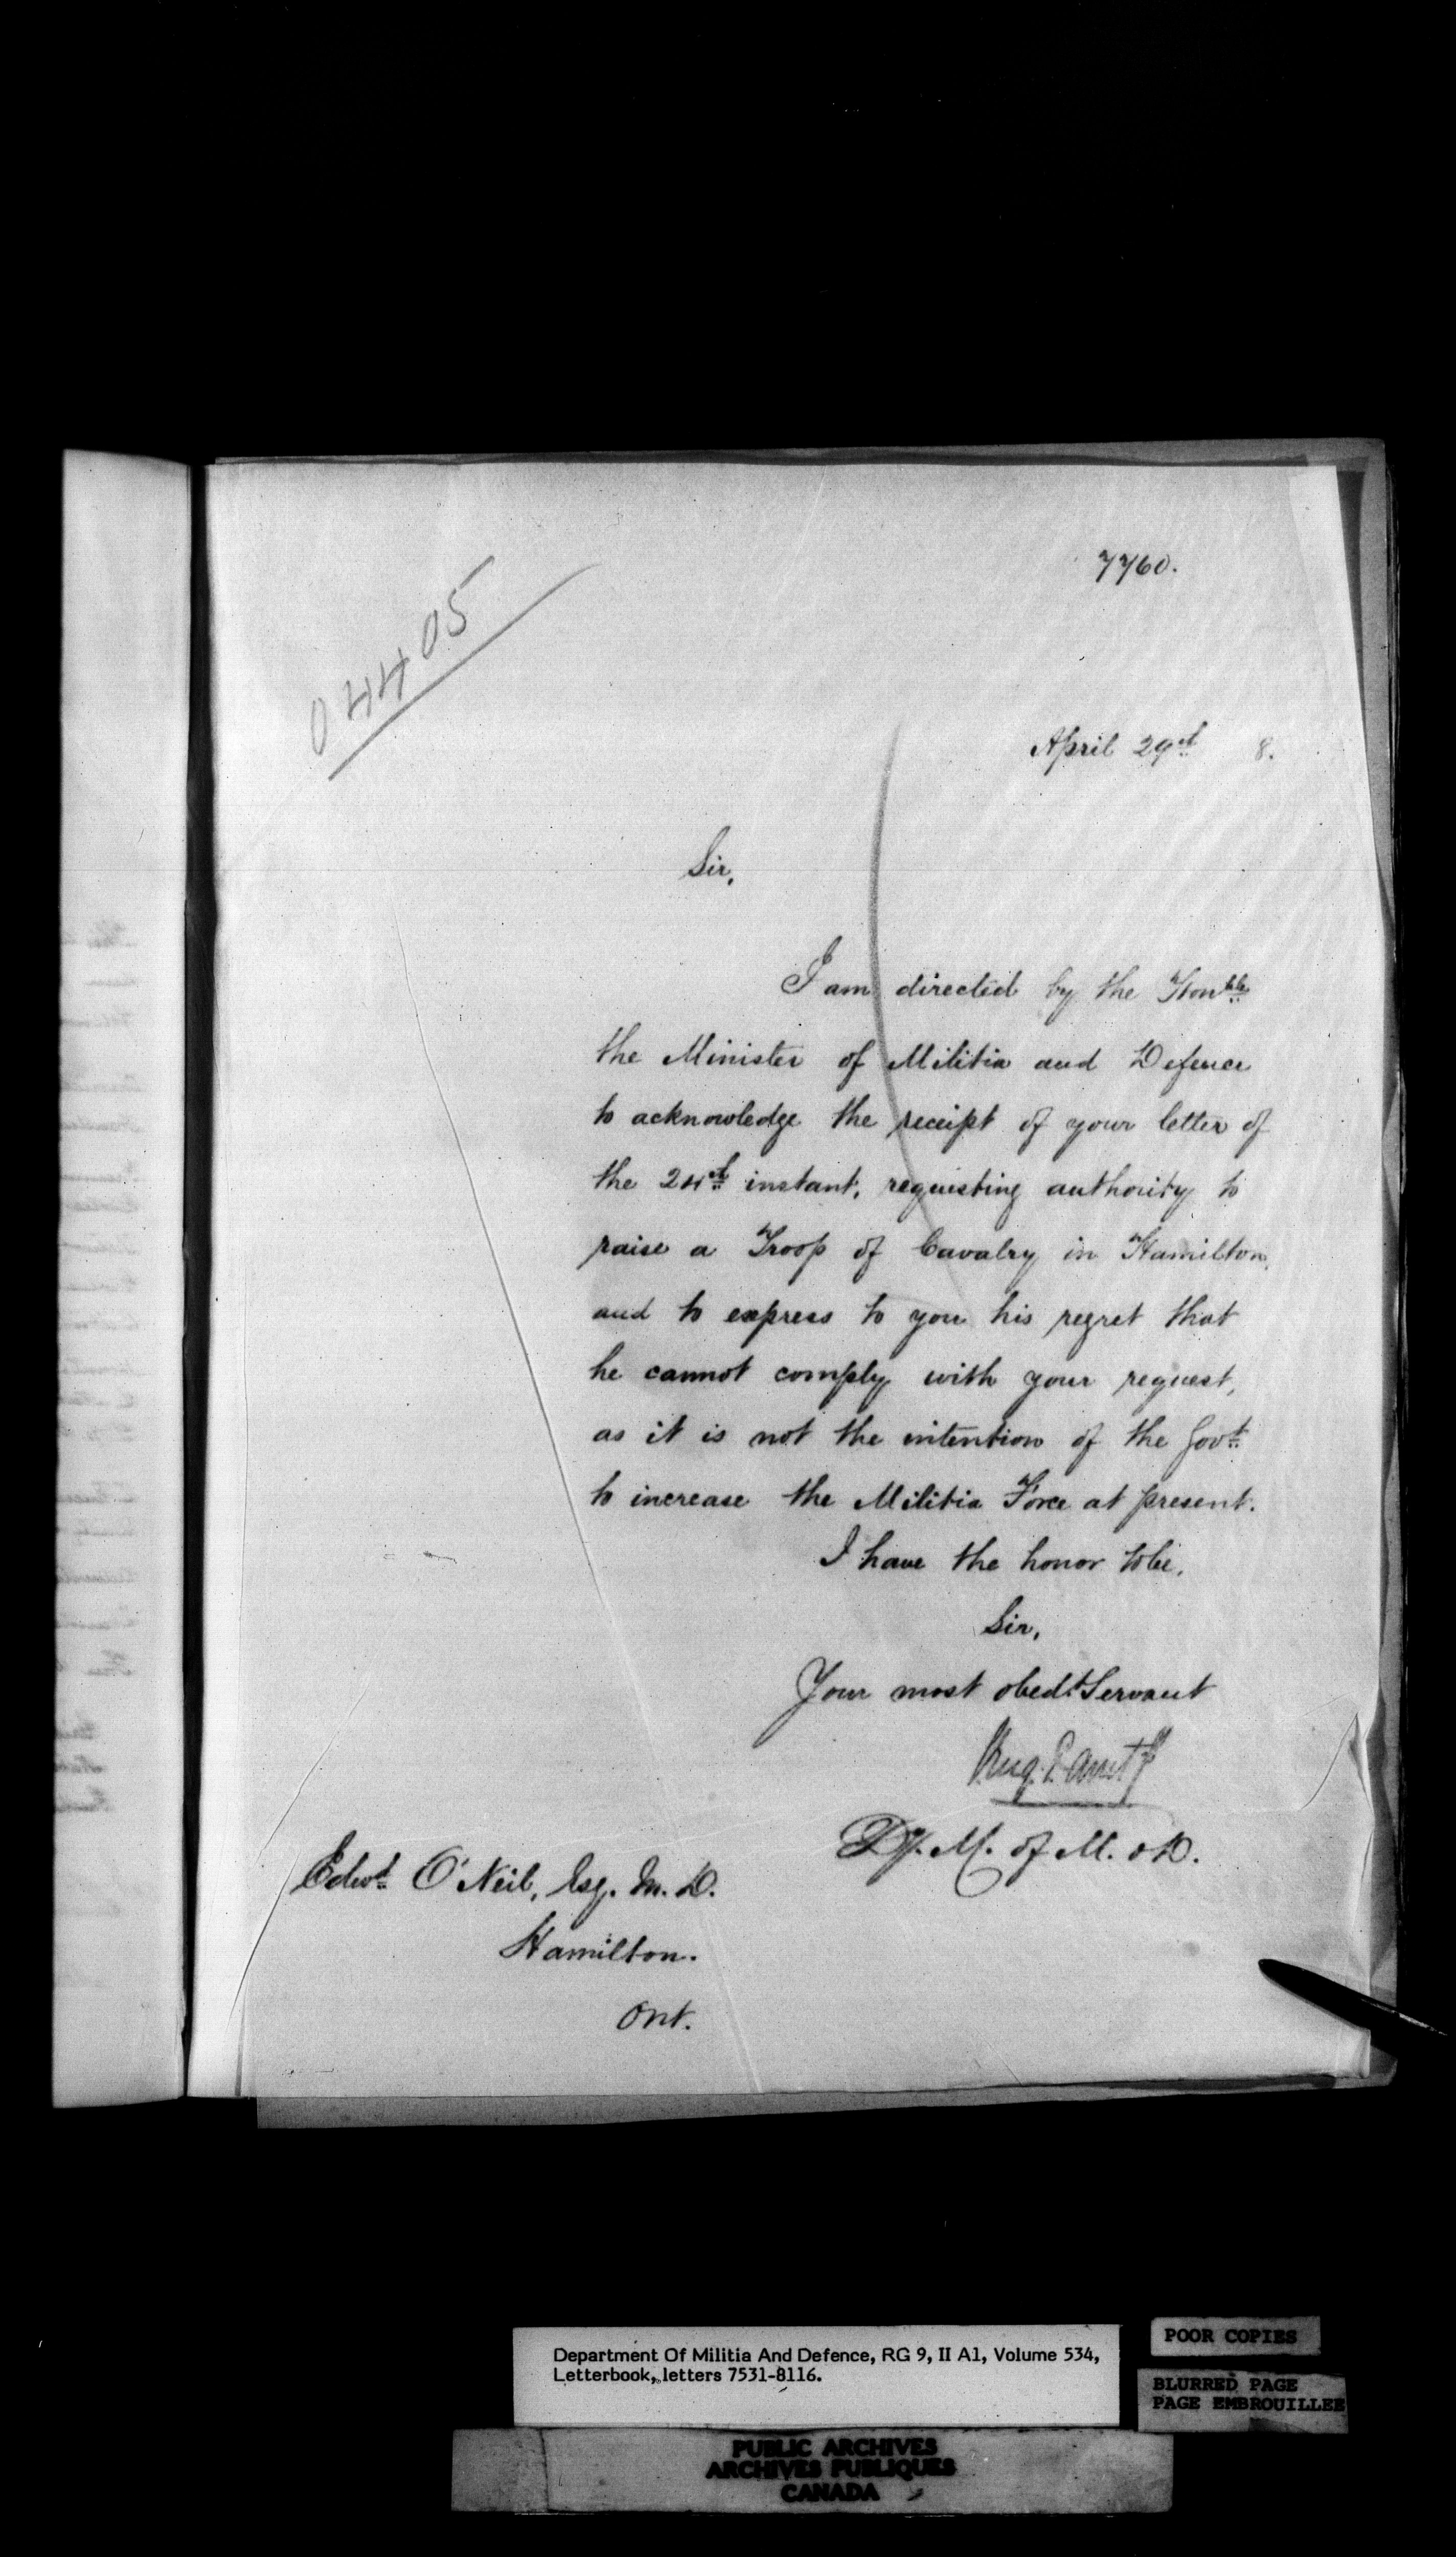 7760.
04405
April 29th 8.
Sir,
I am directed by the Honble
the Minister of Militia and Defence
to acknowledge the receipt of your letter of
the instant, requesting authority to
raise a Troop of Cavalry in Hamilton,
and to express to you his regret that
he cannot comply with your request,
as it is not the intention of the Govt
to increase the Militia Force at present.
I have the honor to be,
Sir,
Your most obedt Servant
Dy. M. of M. & D.
Edwd O'Neil, Esq. M. D.
Hamilton.
Ont.
Department Of Militia And Defence, RG 9, II A1, Volume 534,
Letterbook, letters 7531-8116.
POOR COPIES
BLURRED PAGE
PAGE EMBROUILLEE
PUBLIC ARCHIVES
ARCHIVES PUBLIQUES
CANADA